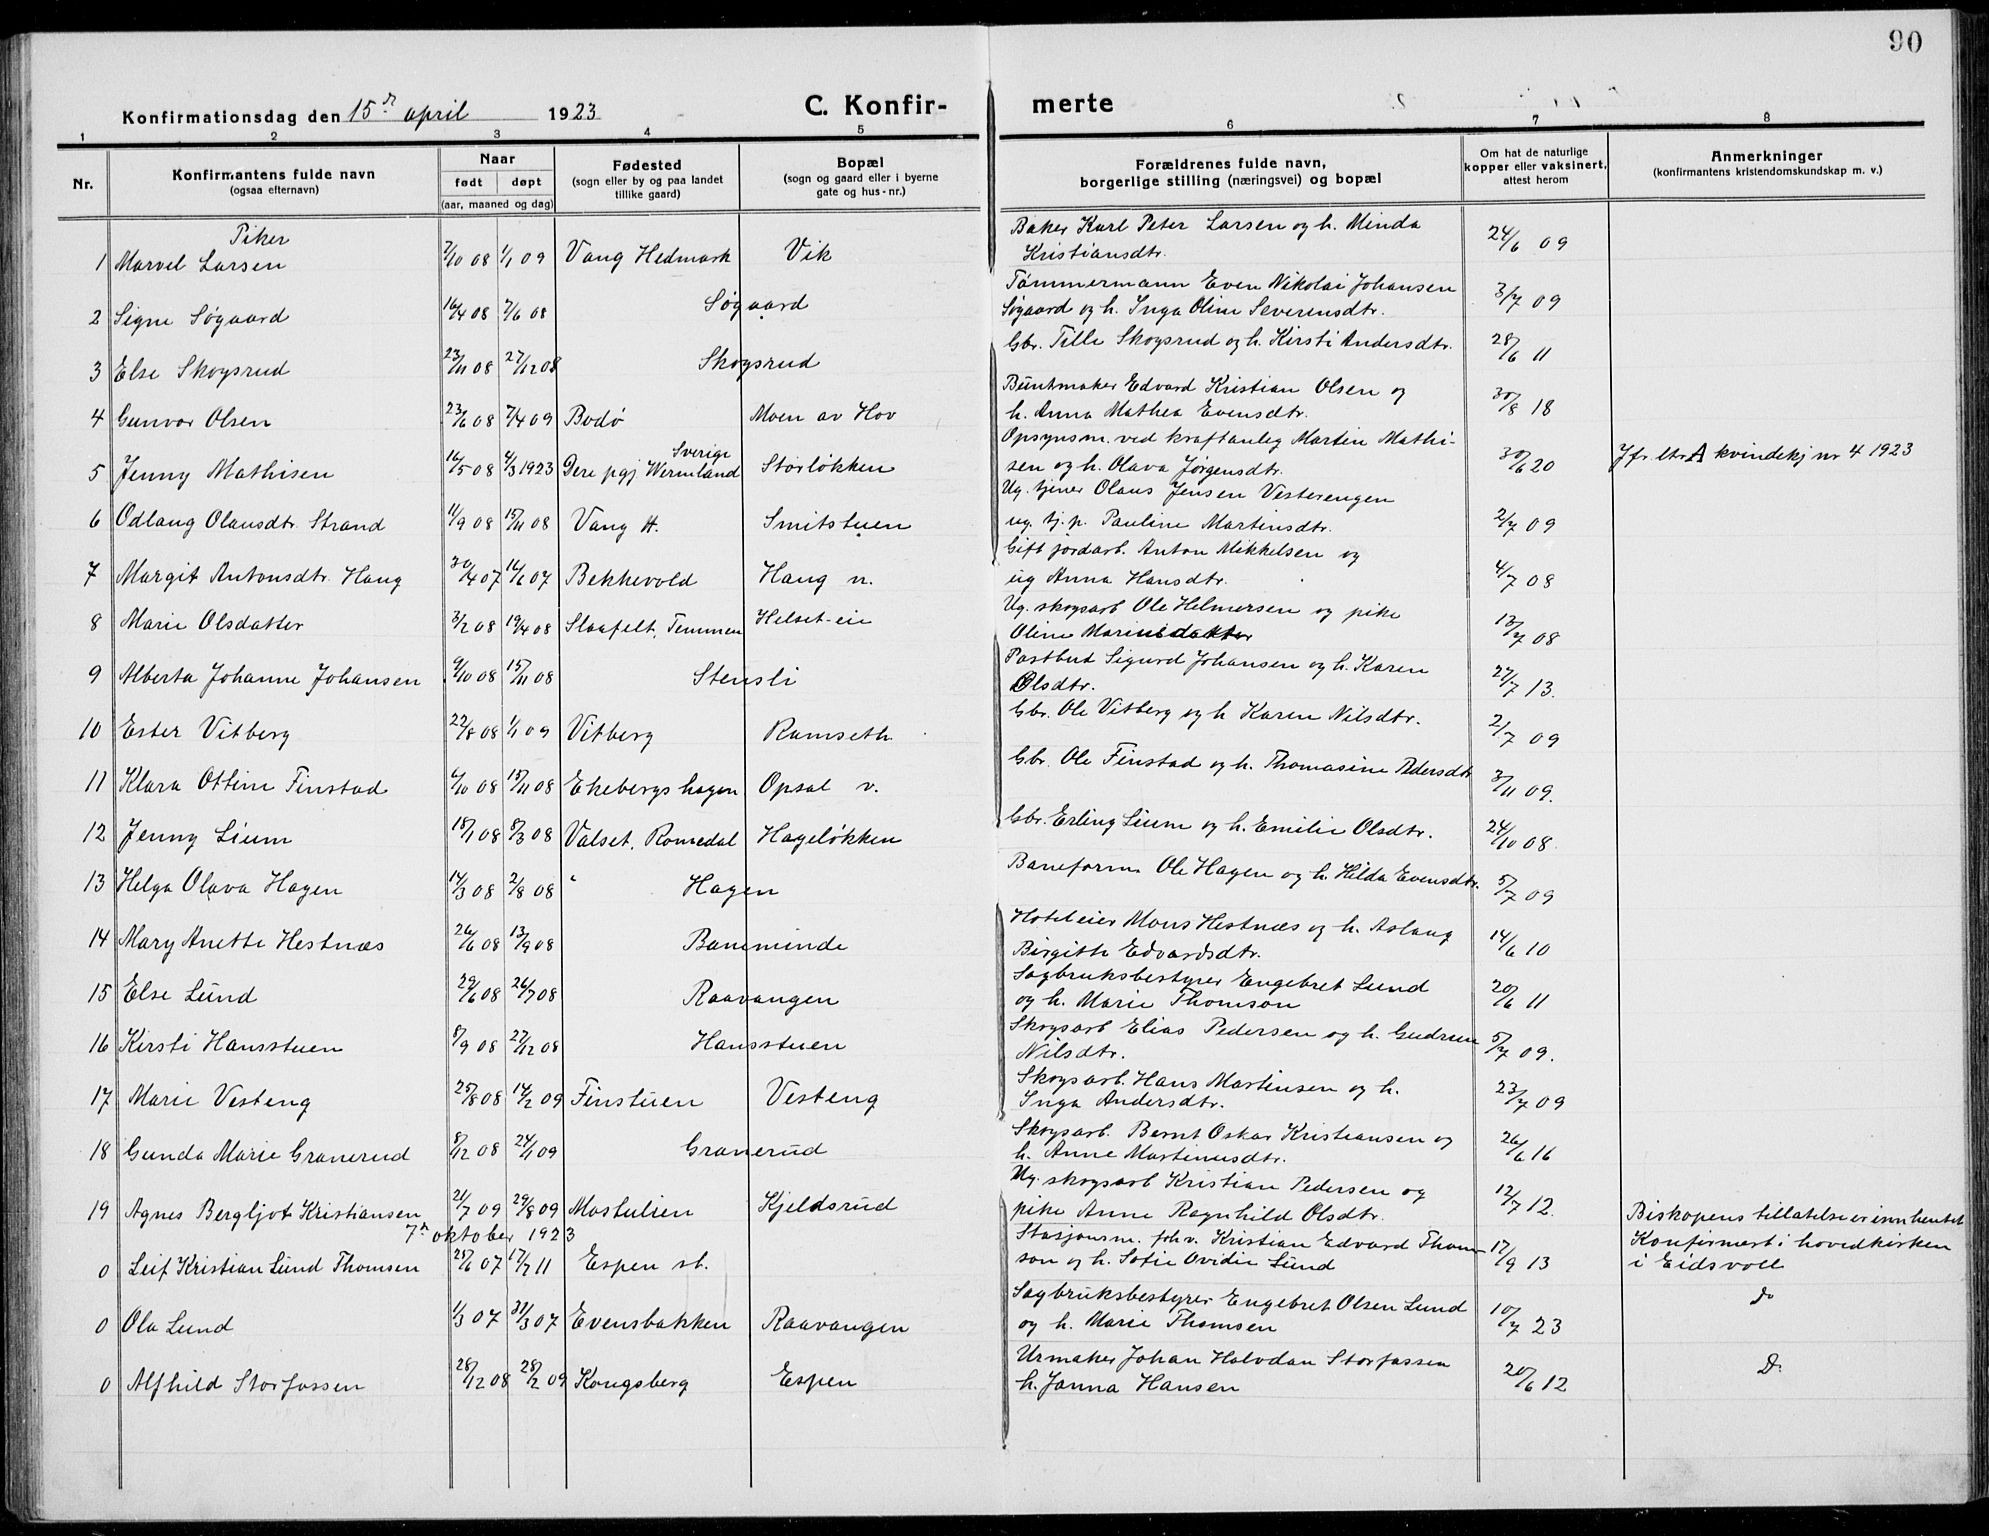 90
Konfirmationsdag den 15de april 1923
C. Konfir-merte
1 2 3 4 5 6 7 8
Nr. Konfirmantens fulde navn (ogsaa efternavn) Naar født døpt (aar, maaned og dag) Fødested (sogn eller by og paa landet tillike gaard) Bopæl (sogn og gaard eller i byerne gate og hus-nr.) Forældrenes fulde navn, borgerlige stilling (næringsvei) og bopæl Om hat de naturlige kopper eller vaksinert, attest herom Anmerkninger (konfirmantens kristendomskundskap m. v.)
Piker
1 Marvel Larsen 7/10 08 1/1 09 Vang Hedmark Vik Baker Karl Peter Larsen og h. Minda Kristiansdtr. 24/6 09
2 Signe Søgaard 16/4 08 7/6 08 Søgaard Tømmermann Even Nikolai Johansen Søgaard og h. Inga Oline Severensdtr. 3/7 09
3 Else Skogsrud 23/11 08 27/12 08 Skogsrud Gbr. Tille Skogsrud og h. Kirsti Andersdtr. 28/6 11
4 Gunvor Olsen 23/6 08 7/4 09 Bodø Moen av Hov Buntmaker Edvard Kristian Olsen og h. Anna Mathea Evensdtr. 30/8 18
5 Jenny Mathisen 16/5 08 4/3 1923 Dere pgj Wermland Sverige Storløkken Opsynsm. ved kraftanleg Martin Mathisen og h. Olava Jørgensdtr. 30/6 20 Jfr. ltr. A kvindekj nr 4 1923
6 Odlaug Olausdtr. Strand 11/9 08 15/11 08 Vang H. Smitstuen Ug. tjener Olaus Jensen Vesterengen ug. tj. p. Pauline Martinsdtr. 2/7 09
7 Margit Antonsdtr. Haug 30/4 07 16/6 07 Bekkevold Haug n. Gift jordarb. Anton Mikkelsen og ug Anna Hansdtr. 4/7 08
8 Marie Olsdatter 3/2 08 19/4 08 Slaafelt, Temmen Helset-eie Ug. skogsarb Ole Helmersen og pike Oline Marinsdatter 13/7 08
9 Alberta Johanne Johansen 9/10 08 15/11 08 Stensli Postbud Sigurd Johansen og h. Karen Olsdtr. 27/7 13.
10 Ester Vitberg 22/8 08 1/1 09 Vitberg Ramseth. Gbr. Ole Vitberg og h Karen Nilsdtr. 2/7 09
11 Klara Ottine Finstad 6/10 08 15/11 08 Ekebergshagen Opsal v. Gbr. Ole Finstad og h. Thomasine Pedersdtr 3/11 09.
12 Jenny Lium 18/1 08 8/3 08 Valset, Romedal Hageløkken Gbr. Erling Lium og h. Emilie Olsdtr. 24/10 08.
13 Helga Olava Hagen 14/3 08 2/8 08 " Hagen Baneform. Ole Hagen og h. Hilda Evensdtr. 5/7 09
14 Mary Anette Hestnæs 26/6 08 13/9 08 Baneminde Hoteleier Mons Hestnæs og h. Aslaug Birgitte Edvardsdtr. 14/6 10
15 Else Lund 29/6 08 26/7 08 Raavangen Sagbruksbestyrer Engebret Lund og h. Marie Thomson 20/6 11
16 Kirsti Hansstuen 8/9 08 27/12 08 Hansstuen Skogsarb Elias Pedersen og h. Gudrun Nilsdtr. 5/7 09.
17 Marie Vesteng 25/8 08 14/2 09 Finstuen Vesteng Skogsarb. Hans Martinsen og h. Inga Andersdtr. 23/7 09
18 Gunda Marie Granerud 8/12 08 24/1 09 Granerud Skogsarb. Bernt Oskar Kristiansen og h. Anne Martinusdtr. 26/6 16
19 Agnes Bergljot Kristiansen 21/7 09 29/8 09 Mostulien Kjeldsrud Ug. skogsarb Kristian Pedersen og pike Anne Ragnhild Olsdtr. 12/7 12.
7de oktober 1923
0 Leif Kristian Lund Thomsen 25/6 07 17/7 11 Espen st. Stasjonsm. forh.v. Kristian Edvard Thomson og h. Sofie Ovidie Lund 17/9 13 Biskopens tillatelse er innhentet Konfirmert i hovedkirken i Eidsvoll
0 Ola Lund 1/3 07 31/3 07 Evensbakken Raavangen Sagbruksbestyrer Engebret Olsen Lund og h. Marie Thomsen 10/7 23 do
0 Alfhild Storfossen 28/12 08 28/2 09 Kongsberg Espen Urmaker Johan Halvdan Storfossen h. Janna Hansen 20/6 12 Do.